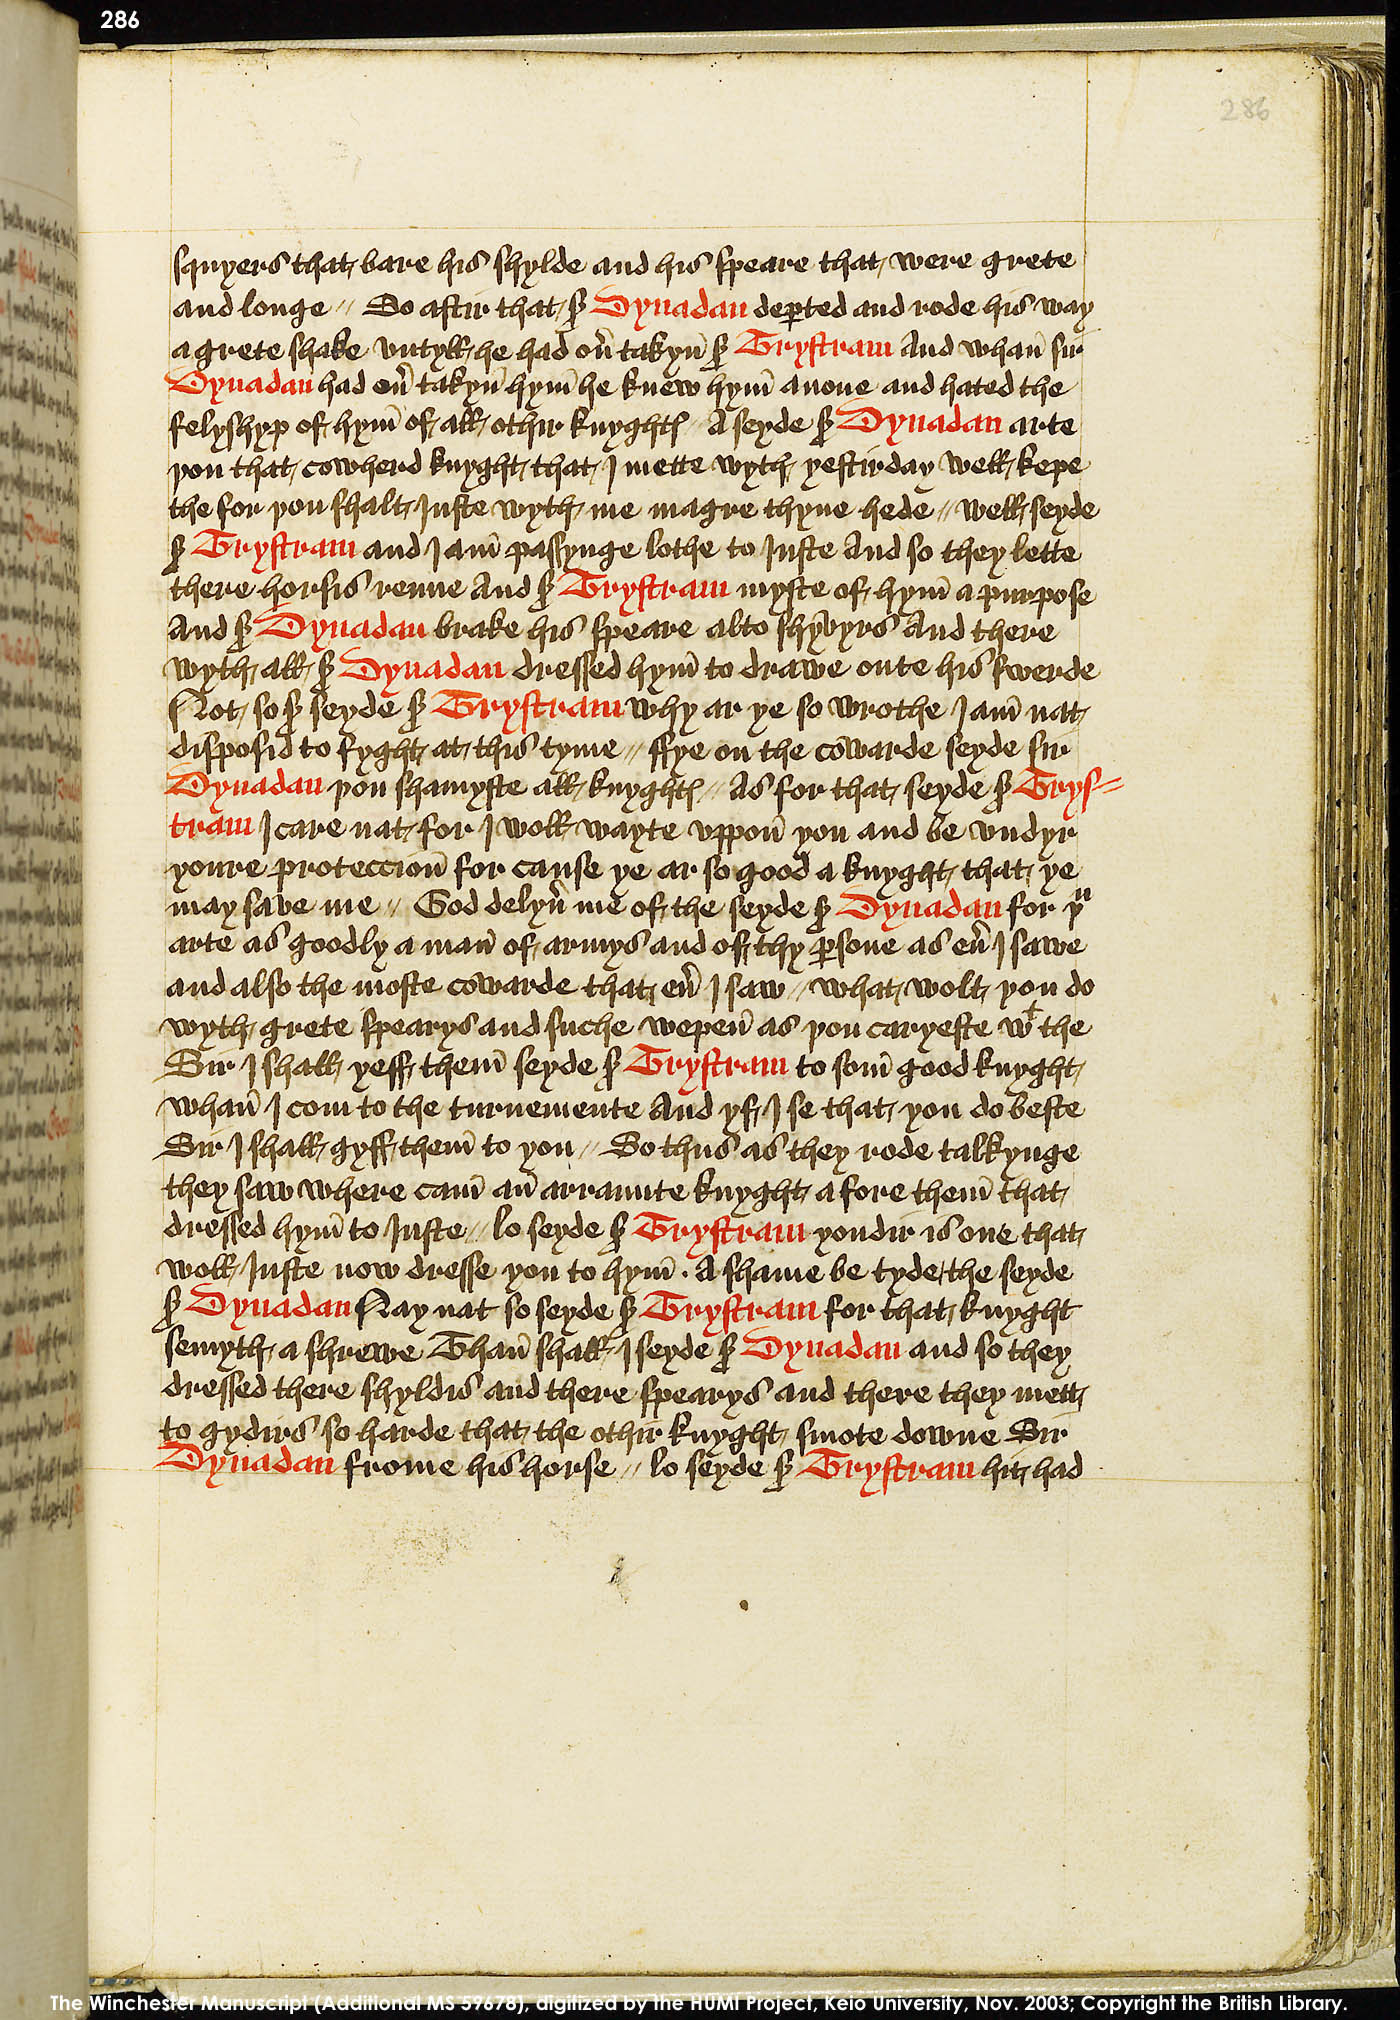 286
286
squyers that bare his shylde and his speare that were grete
and longe // So aftir that sir Dynadan depted and rode his way
a grete shake vntyll he had oũ takyn sir Trystram And whan sir
Dynadan had oũ takyn hym he knew hym anone and hated the
felyshyp of hym of all othir knyghtꝭ // A seyde sir Dynadan arte
þou that cowherd knyght that I mette wyth yestirday well kepe
the for þou shalt Juste wyth me magre thyne hede // well seyde
sir Trystram and I am passynge lothe to Juste And so they lette
there horsis renne And sir Trystram myste of hym a purpose
And sir Dynadan brake his speare alto shyvyrs And there
wyth all sir Dynadan dressed hym to drawe oute his swerde
Not so sir seyde sir Trystram why ar ye so wrothe I am nat
disposid to fyght at this tyme // ffye on the cowarde seyde sir
Dynadan þou shamyste all knyghtꝭ // As for that seyde sir Trys-
tram I care nat for I woll wayte vppon you and be vndyr
youre proteccion for cause ye ar so good a knyght that ye
may save me // God delyũ me of the seyde sir Dynadan for þu
arte as goodly a man of armys and of thy psone as eũ I sawe
and also the moste cowarde that eũ I saw // what wolt þou do
wyth grete spearys and suche wepen as þou caryeste wt the
Sir I shall yeff them seyde sir Trystram to som good knyght
whan I com to the turnemente And yf I se that you do beste
Sir I shall gyff them to you // So thus as they rode talkynge
they saw where cam an arraunte knyght a fore them that
dressed hym to Juste // lo seyde sir Trystram yondir is one that
woll Juste now dresse you to hym . A shame be tyde the seyde
sir Dynadan Nay nat so seyde sir Trystram for that knyght
semyth a shrewe Than shall I seyde sir Dynadan and so they
dressed there shyldis and there spearys and there they mett
to gydirs so harde that the othir knyght smote downe Sir
Dynadan frome his horse // lo seyde sir Trystram hit had
The Winchester Manuscript (Additional MS 59678), digitized by the HUMI Project, Keio University, Nov. 2003; Copyright the British Library.